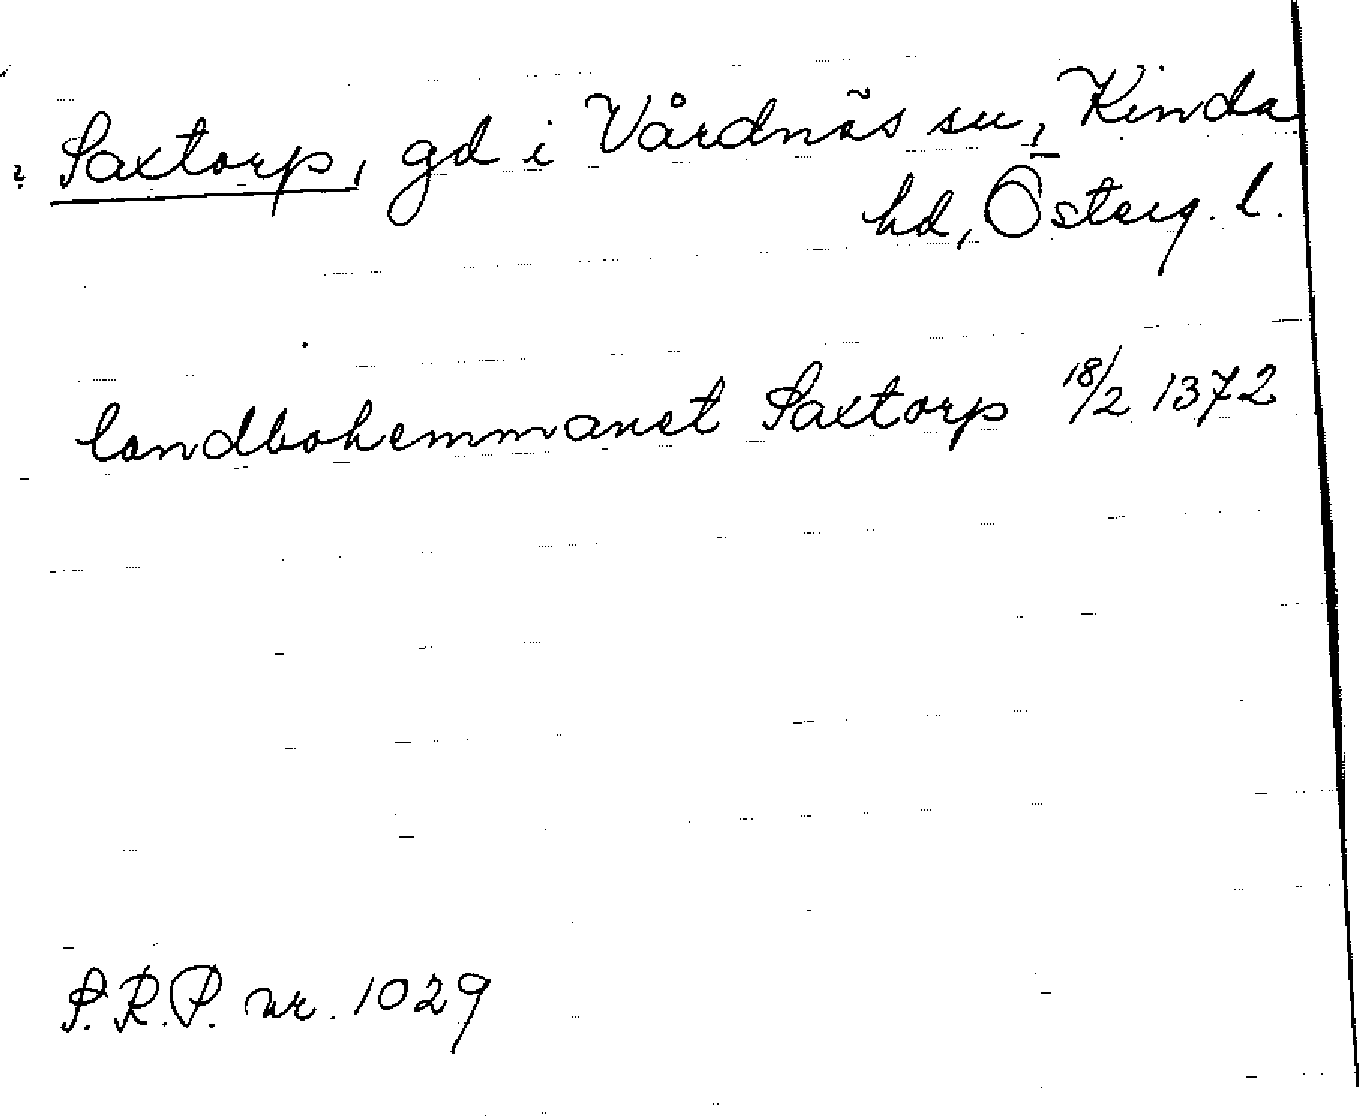 ? Saxtorp, gd i Vårdnäs sn, Kinda
hd, Österg. l.
landbohemmanet Saxtorp 18/2 1372
S.R.P. nr. 1029